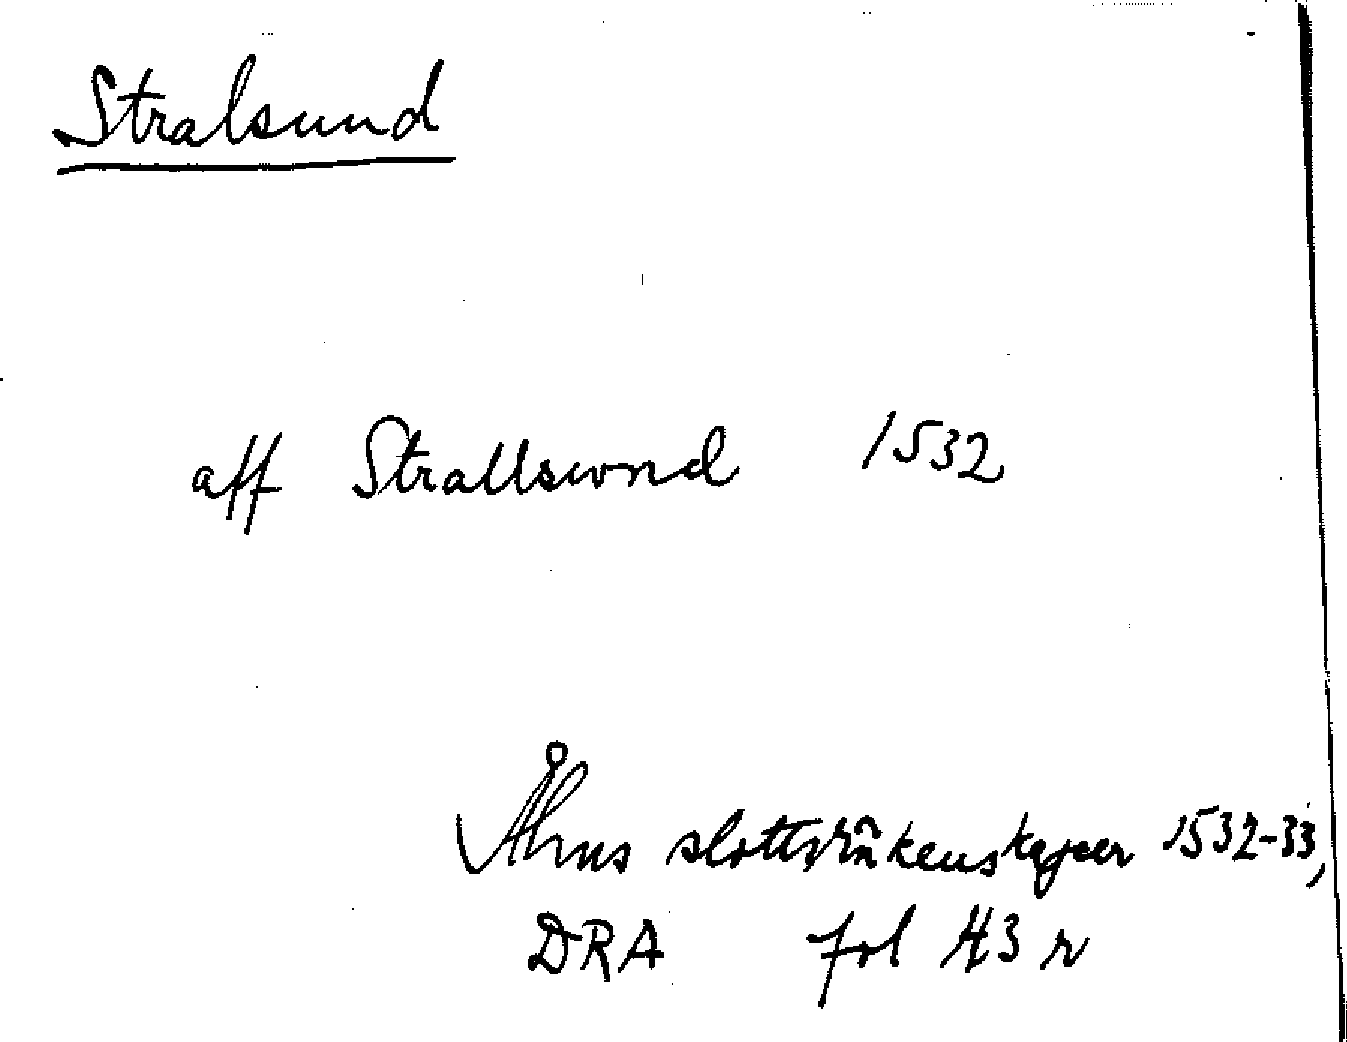 Stralsund
aff Strallswnd 1532
Åhus slottsräkenskaper 1532-33,
DRA fol 43 r